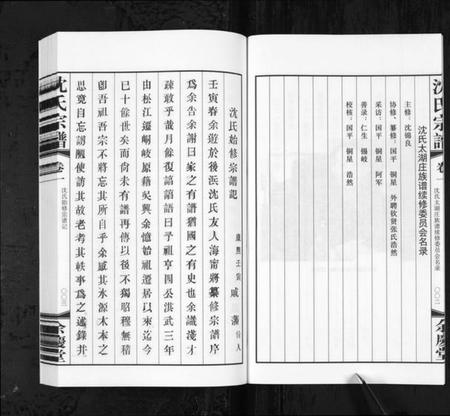 沈氏宗譜
卷一
沈氏太湖庄族谱续修委员会名录
〇〇二
余慶堂
沈氏太湖庄族谱续修委员会名录
主修：沈锦良
协修、纂修：国平 铜星 外聘钦贤张氏浩然
采访：国平 铜星 阿军
善录：仁生 锡岐
校核：国平 铜星 浩然
沈氏始修宗譜記
康熙壬寅 戚藩 价人
壬寅春余遊於後浜沈氏友人海甯將纂修宗譜序
為余告余謝曰家之有譜猶國之有史也余譾淺才
疎敢乎哉月餘復諮諮語曰予祖亨四公洪武三年
由松江遷峒岐原籍吳興余憶始祖遷居以來迄今
已十餘世矣而尚未有譜再傳以後不獨昭穆無稽
卽吾祖吾宗不將忘其所自乎余感其水源木本之
思竟自忘謭陋使訪其故老考其軼事為之遞錄并
沈氏宗譜
卷一
沈氏始修宗譜记
〇〇三
余慶堂